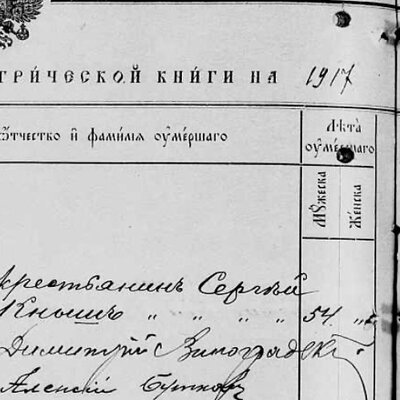 трⷱ҇ической книги на 1917
ѿтчество и фамилія оумершаго
Лѣта
оумершаго
Мꙋжеска
Женска
крестьянинъ Сергѣй
Кнышъ " " " " 54. "
Димитрій Виноградскі
Алексій